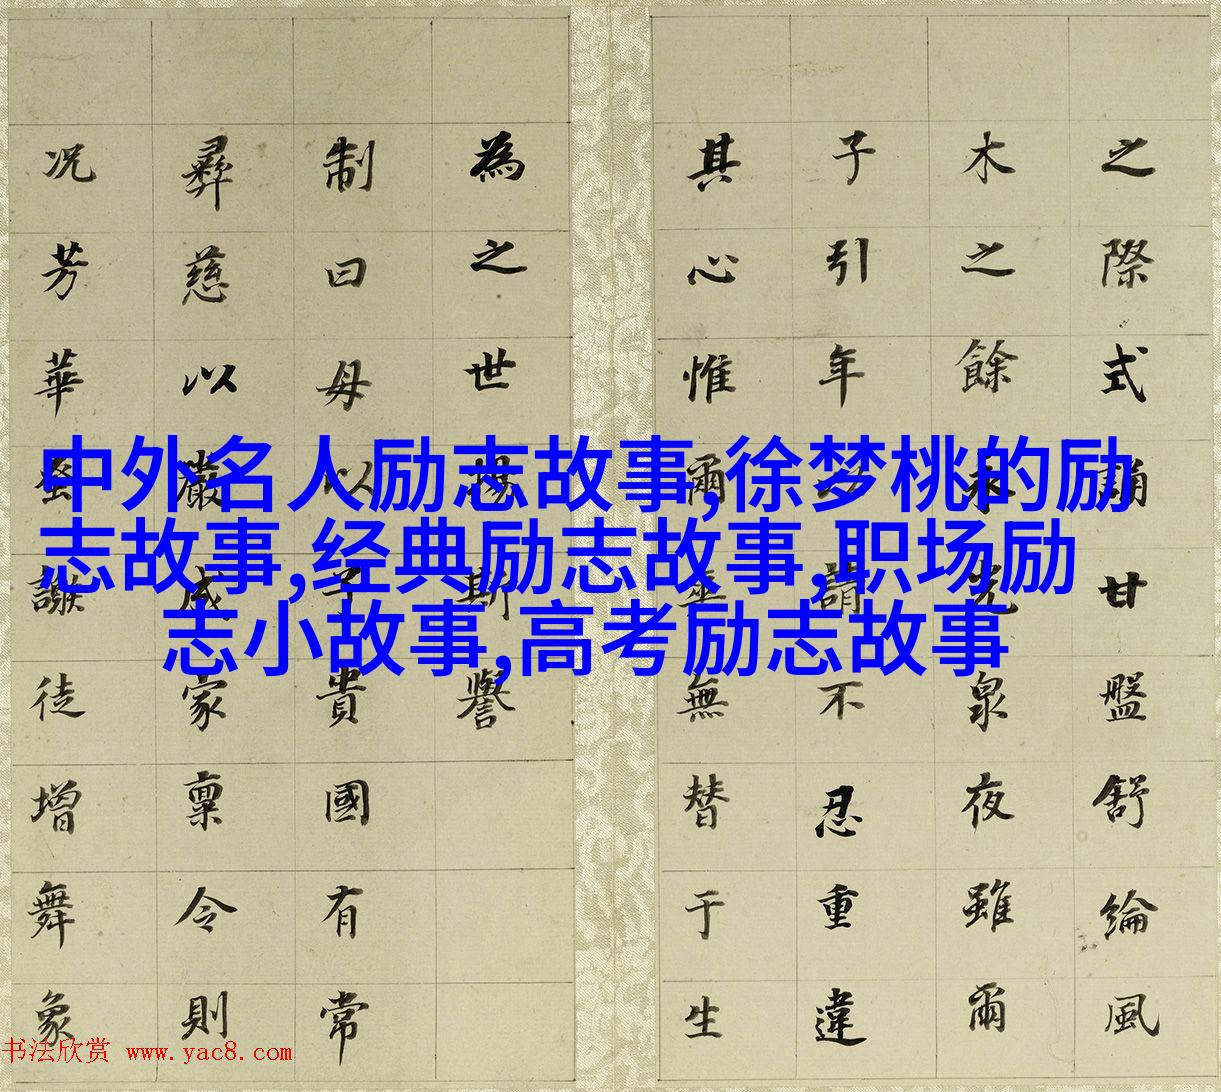 中外名人励志故事,徐梦桃的励
志故事,经典励志故事,职场励
志小故事,高考励志故事
之際式誦甘盤舒綸風
木之餘光泉夜雖爾
子引年以請不忍重違
其心惟爾無替于生
為之世揚斯譽
制曰母以子貴國有常
彝慈以嚴成家稟令則
况芳華蚤謝徒增舞象
书法欣赏 www.yac8.com